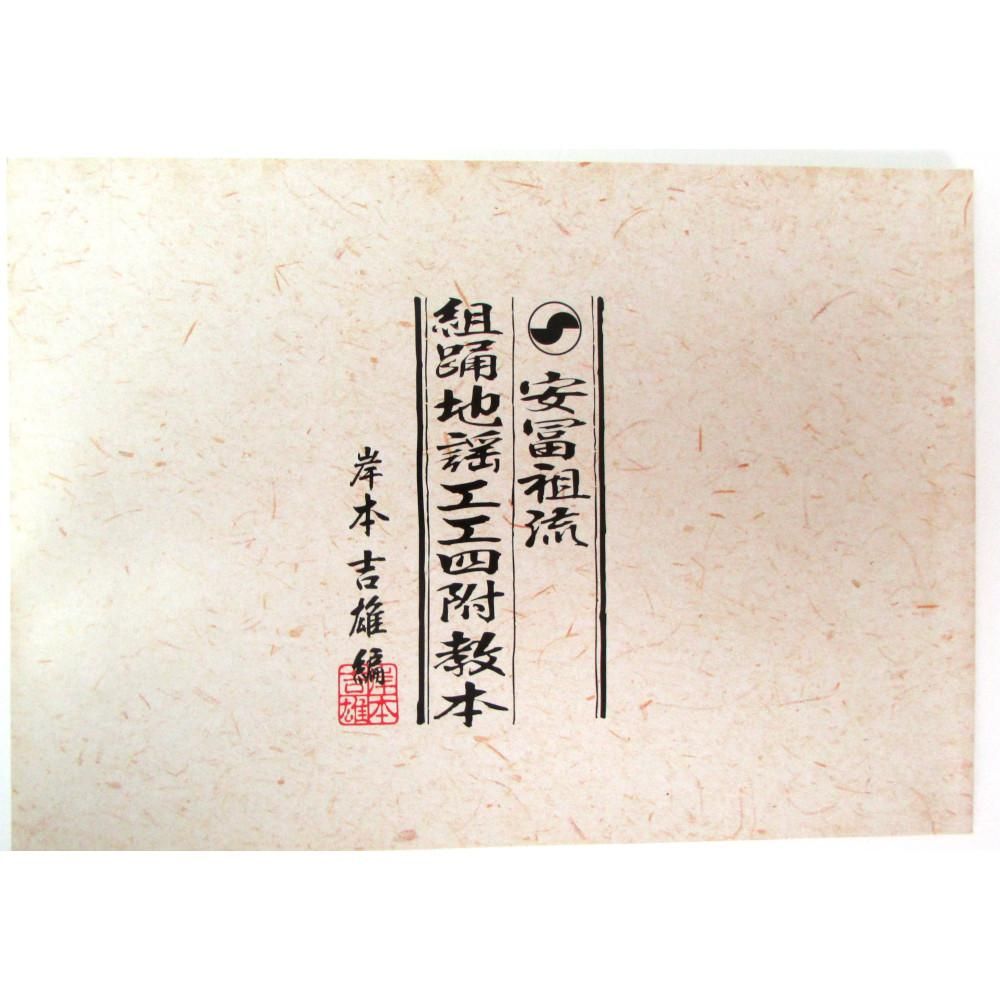 安冨祖流
組踊地謡工工四附教本
岸本吉雄編
岸本
吉雄